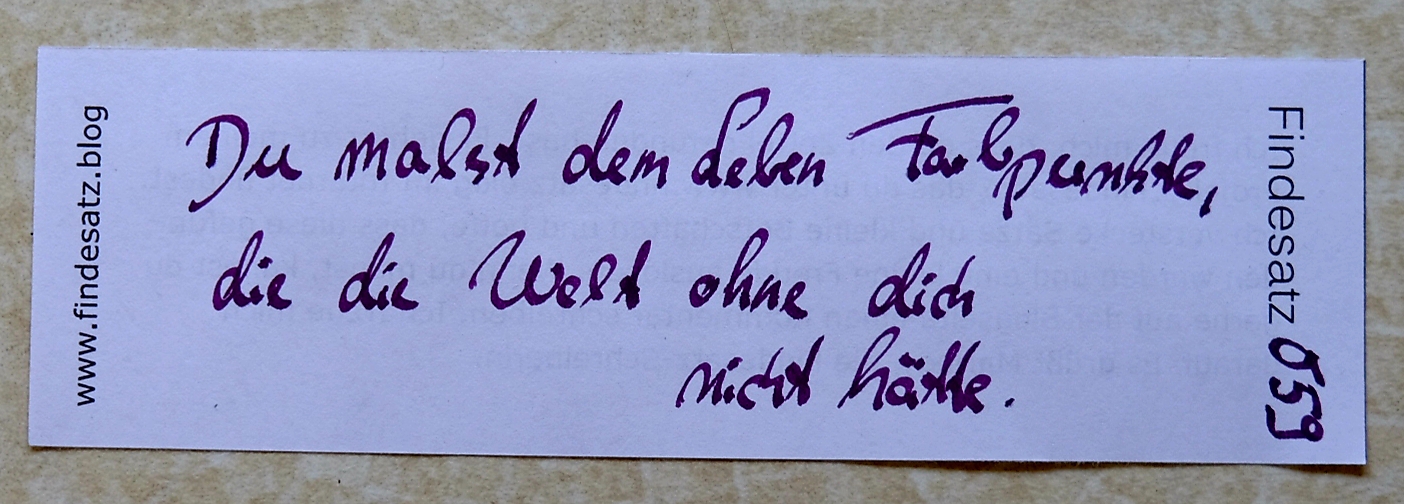 www.findesatz.blog
Du malst dem Leben Farbpunkte,
die die Welt ohne dich
nicht hätte.
Findesatz 059